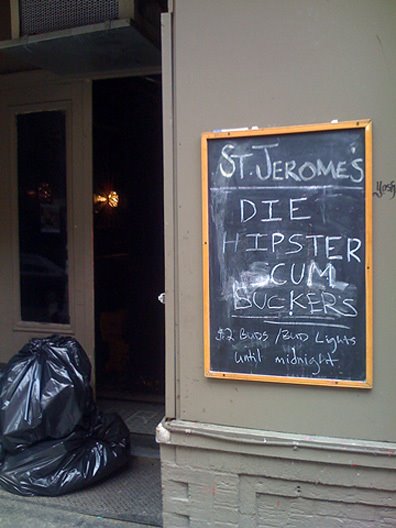 ST. JEROME'S
DIE
HIPSTER
SCUM
BUCKERS
$2 BUDS / BUD Lights
until midnight
Yosh